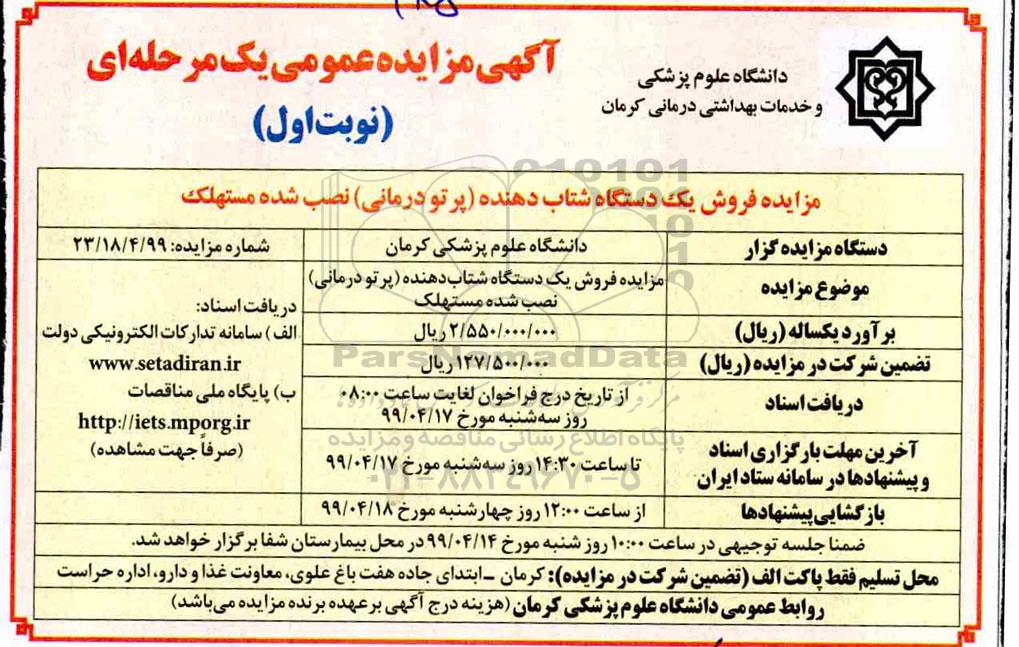 دانشگاه علوم پزشکی
و خدمات بهداشتی درمانی کرمان
آگهی مزایده عمومی یک مرحله‌ای
(نوبت اول)
مزایده فروش یک دستگاه شتاب دهنده (پرتو درمانی) نصب شده مستهلک
دستگاه مزایده گزار
دانشگاه علوم پزشکی کرمان
شماره مزایده: ۲۳/۱۸/۴/۹۹
موضوع مزایده
مزایده فروش یک دستگاه شتاب‌دهنده (پرتو درمانی)
نصب شده مستهلک
برآورد یکساله (ریال)
۲/۵۵۰/۰۰۰/۰۰۰ ریال
تضمین شرکت در مزایده (ریال)
۱۲۷/۵۰۰/۰۰۰ ریال
دریافت اسناد
از تاریخ درج فراخوان لغایت ساعت ۰۸:۰۰
روز سه‌شنبه مورخ ۹۹/۰۴/۱۷
آخرین مهلت بارگزاری اسناد
و پیشنهادها در سامانه ستاد ایران
تا ساعت ۱۴:۳۰ روز سه‌شنبه مورخ ۹۹/۰۴/۱۷
بازگشایی پیشنهادها
از ساعت ۱۲:۰۰ روز چهارشنبه مورخ ۹۹/۰۴/۱۸
دریافت اسناد:
الف) سامانه تدارکات الکترونیکی دولت
www.setadiran.ir
ب) پایگاه ملی مناقصات
http://iets.mporg.ir
(صرفاً جهت مشاهده)
ضمنا جلسه توجیهی در ساعت ۱۰:۰۰ روز شنبه مورخ ۹۹/۰۴/۱۴ در محل بیمارستان شفا برگزار خواهد شد.
محل تسلیم فقط پاکت الف (تضمین شرکت در مزایده): کرمان - ابتدای جاده هفت باغ علوی، معاونت غذا و دارو، اداره حراست
روابط عمومی دانشگاه علوم پزشکی کرمان (هزینه درج آگهی بر عهده برنده مزایده می‌باشد)
ParsNamadData
پایگاه اطلاع رسانی مناقصه و مزایده
۰۲۱-۸۸۳۴۹۶۷۰-۵